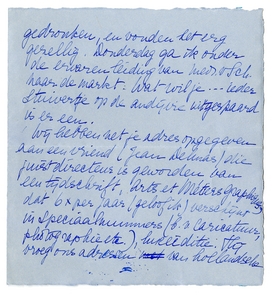 gedronken, en vonden het erg
gezellig. Donderdag ga ik onder
de ervaren leiding van mevr. v. Sch.
naar de markt. Wat wil je --- ieder
stuivertje op de andijvie uitgespaard
is er een.
Wij hebben net je adres opgegeven
aan een vriend (Jean Delmas) die
juist directeur is geworden van
een tijdschrift, Arts et Métiers Graphiques
dat 6 x per jaar (geloof ik) verschijnt
in speciaalnummers (b.v. Caricatuur,
photographie etc),
vroeg ons adressen van hollandsche